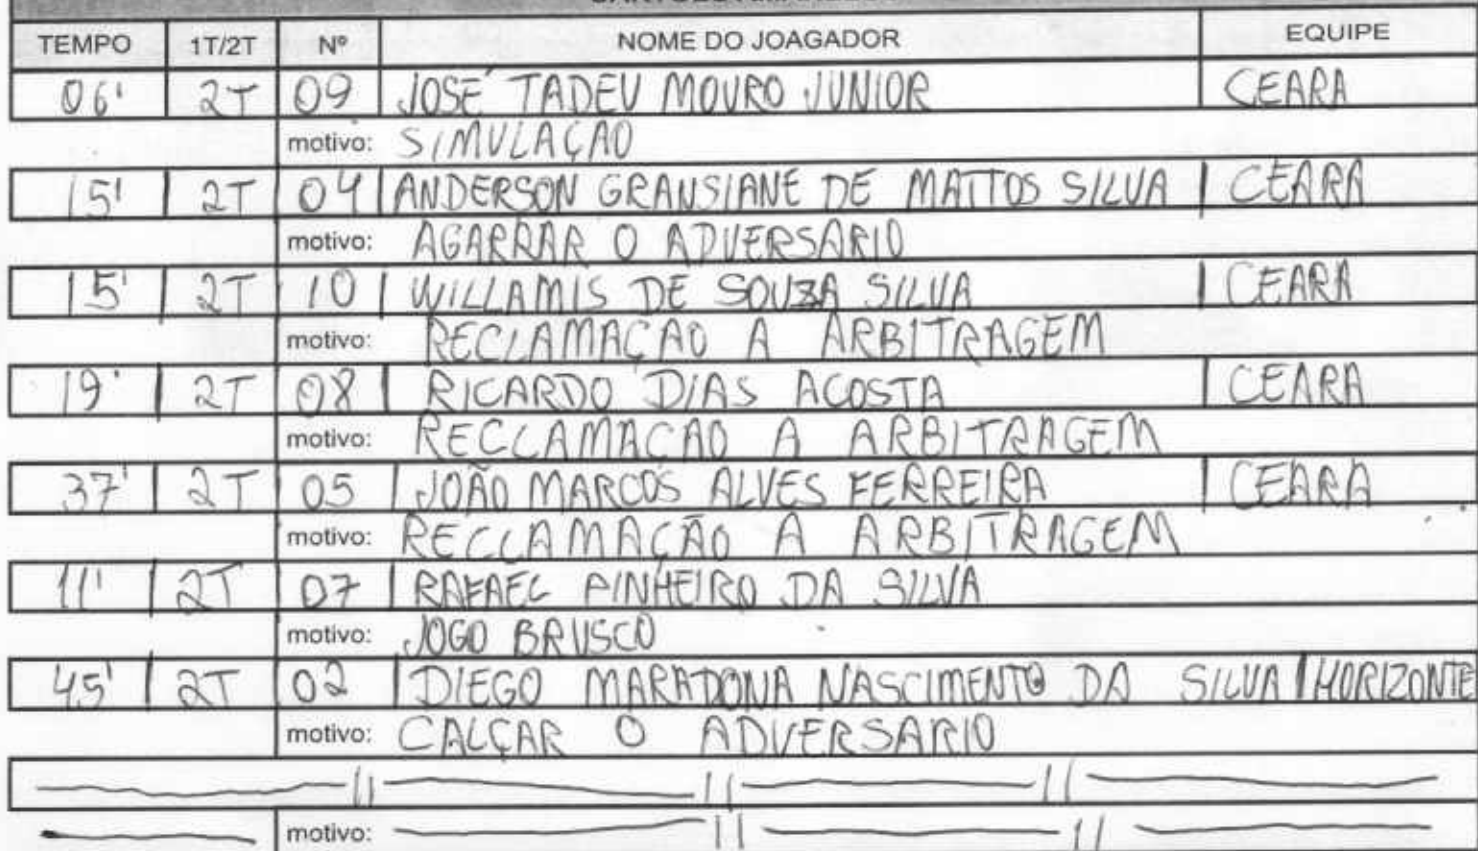 TEMPO 1T/2T Nº NOME DO JOAGADOR EQUIPE
06' 2T 09 JOSÉ TADEU MOURO JUNIOR CEARA
motivo: SIMULAÇAO
15' 2T 04 ANDERSON GRAUSIANE DE MATTOS SILVA CEARA
motivo: AGARRAR O ADVERSARIO
15' 2T 10 WILLAMIS DE SOUZA SILVA CEARA
motivo: RECLAMAÇAO A ARBITRAGEM
19' 2T 08 RICARDO DIAS ACOSTA CEARA
motivo: RECLAMACAO A ARBITRAGEM
37' 2T 05 JOÃO MARCOS ALVES FERREIRA CEARA
motivo: RECLAMAÇÃO A ARBITRAGEM
11' 2T 07 RAFAEL PINHEIRO DA SILVA
motivo: JOGO BRUSCO
45' 2T 02 DIEGO MARADONA NASCIMENTO DA SILVA HORIZONTE
motivo: CALÇAR O ADVERSARIO
motivo: